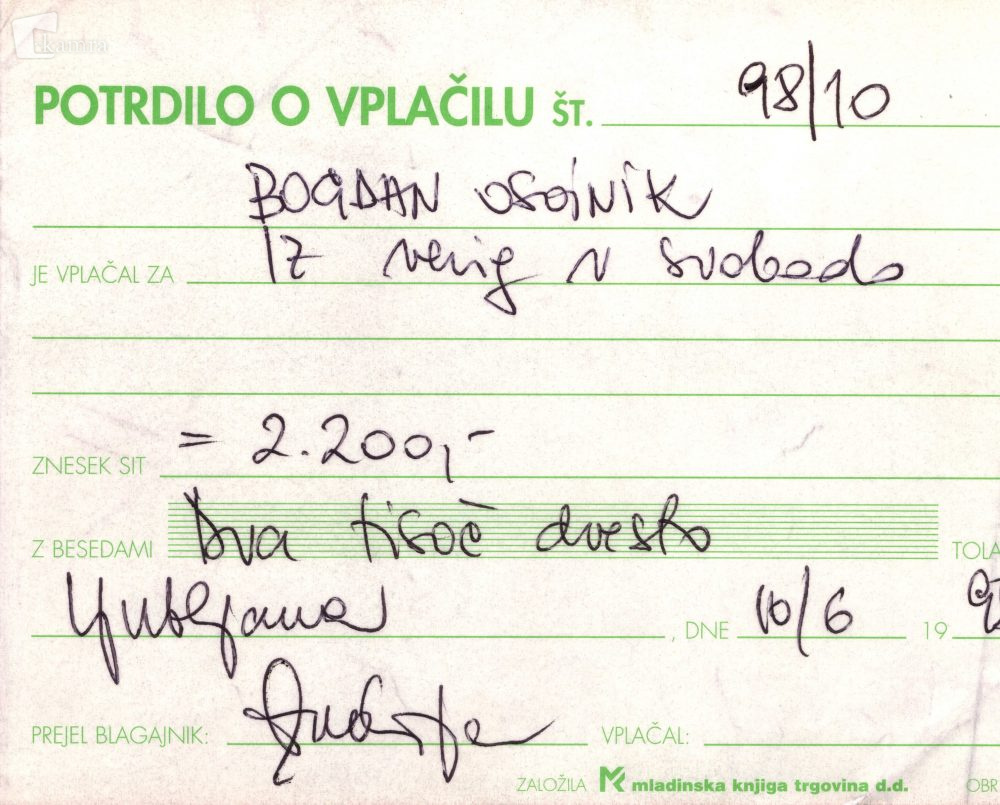 kamra
POTRDILO O VPLAČILU ŠT. 98/10
BOGDAN OSOJNIK
JE VPLAČAL ZA IZ verig v svobodo
ZNESEK SIT = 2.200,-
Z BESEDAMI Dva tisoč dvesto TOLA
Ljubljana , DNE 10/6 19 9
PREJEL BLAGAJNIK: VPLAČAL:
ZALOŽILA MK mladinska knjiga trgovina d.d. OBR